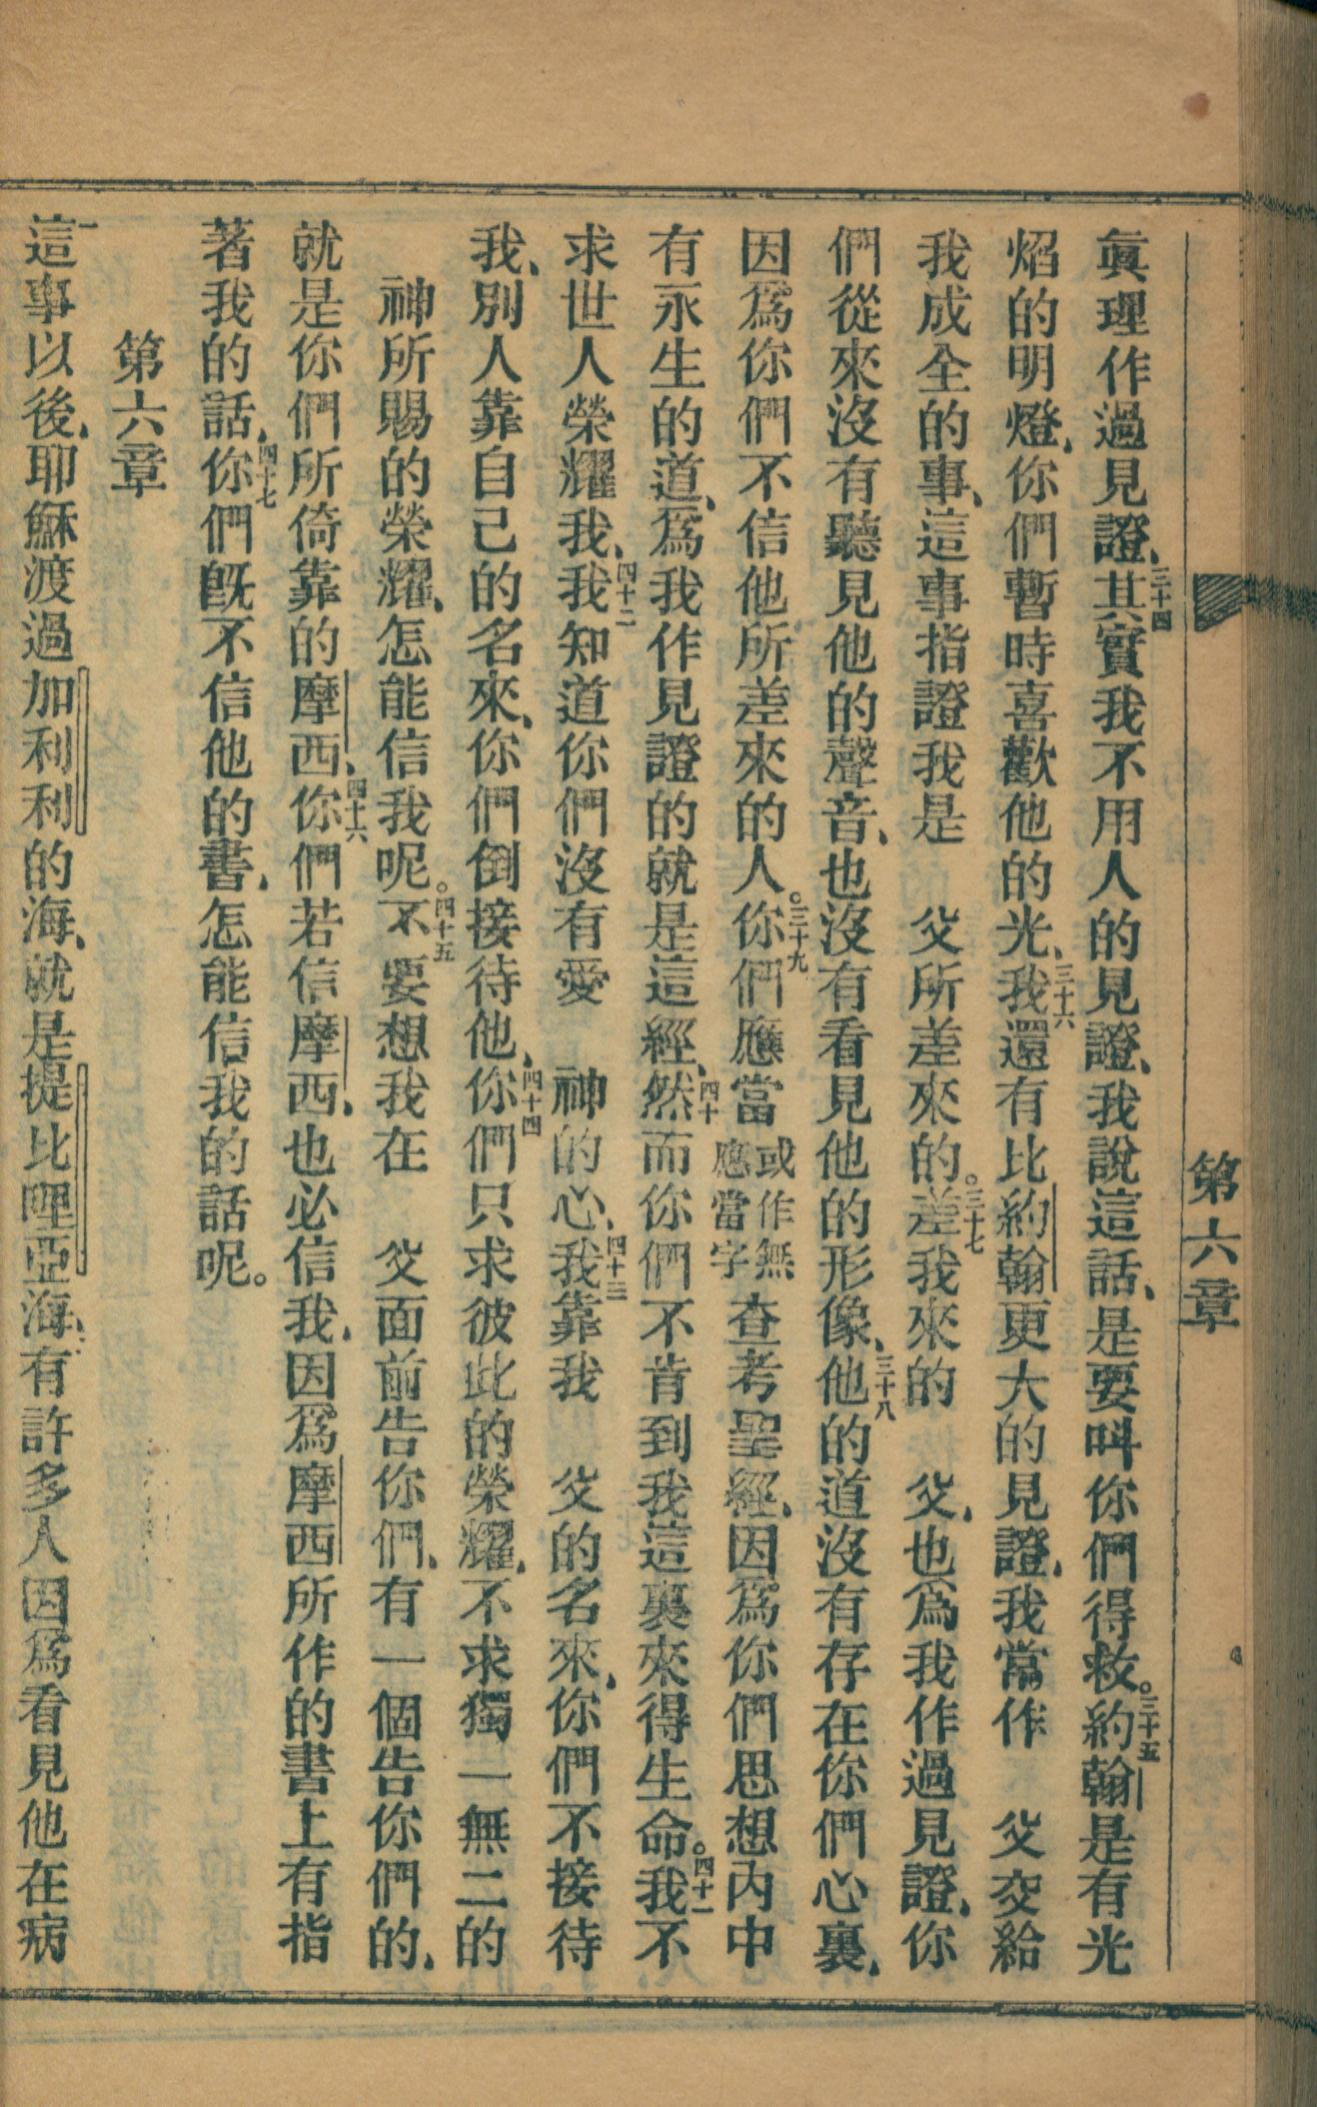 第六章
眞理作過見證、三十四其實我不用人的見證、我說這話、是要叫你們得救。三十五約翰是有光
焰的明燈、你們暫時喜歡他的光、三十六我還有比約翰更大的見證、我當作　父交給
我成全的事、這事指證我是　父所差來的。三十七差我來的　父、也爲我作過見證、你
們從來沒有聽見他的聲音、也沒有看見他的形像、三十八他的道沒有存在你們心裏、
因爲你們不信他所差來的人。三十九你們應當或作無應當字查考聖經、因爲你們思想內中
有永生的道、爲我作見證的就是這經、四十然而你們不肯到我這裏來得生命。四十一我不
求世人榮耀我、四十二我知道你們沒有愛　神的心、四十三我靠我　父的名來、你們不接待
我、別人靠自己的名來、你們倒接待他、四十四你們只求彼此的榮耀、不求獨一無二的
神所賜的榮耀、怎能信我呢。四十五不要想我在　父面前告你們、有一個告你們的、
就是你們所倚靠的摩西、四十六你們若信摩西、也必信我、因爲摩西所作的書上有指
著我的話、四十七你們旣不信他的書、怎能信我的話呢。
第六章
一這事以後、耶穌渡過加利利的海、就是提比哩亞海、二有許多人因爲看見他在病